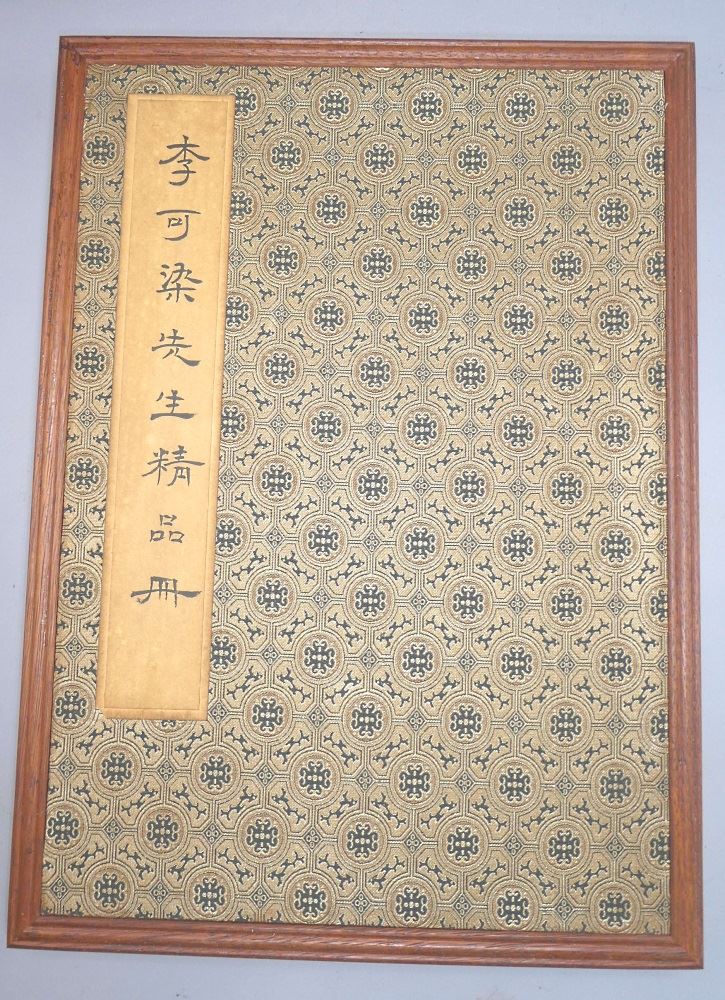 李可染先生精品冊